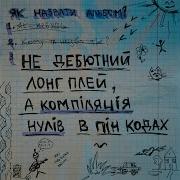 ЯК НАЗВАТИ АЛЬБОМ?
1.
2.
НЕ ДЕБЮТНИЙ
ЛОНГ ПЛЕЙ,
А КОМПІЛЯЦІЯ
НУЛІВ В ПІН КОДАХ